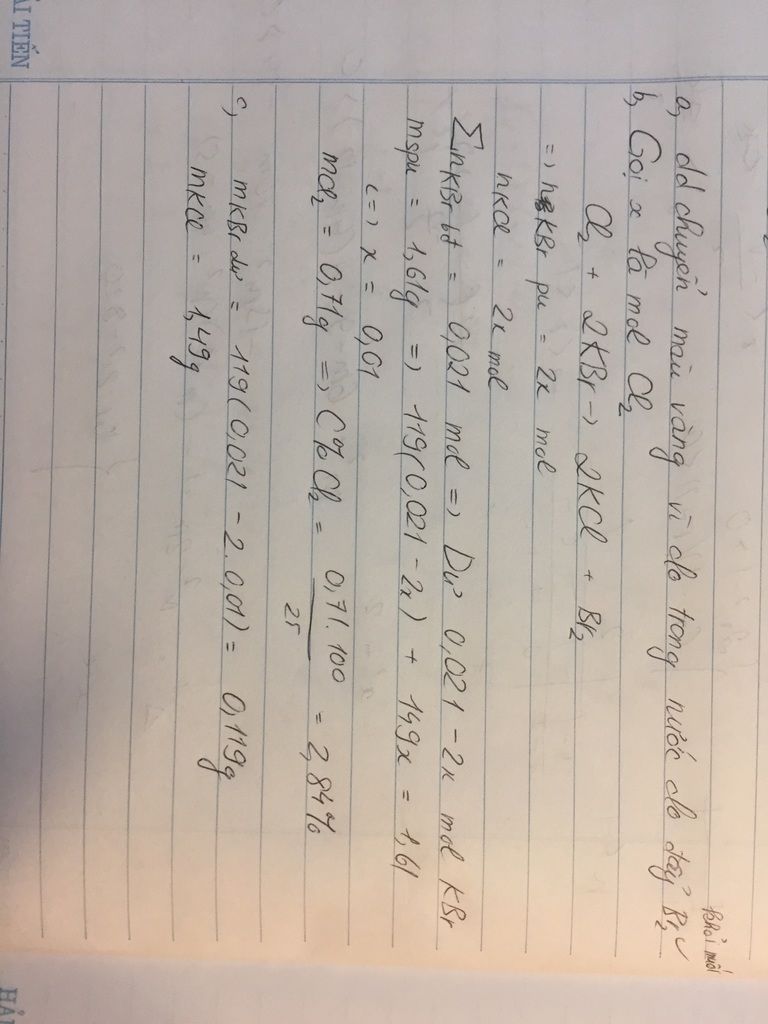 ẢI TIẾN
a, dd chuyển màu vàng vì clo trong nước clo đẩy Br2
khỏi muối
b, Gọi x là mol Cl2
Cl2 + 2KBr → 2KCl + Br2
=> nKBr pu = 2x mol
nKCl = 2x mol
∑nKBr bđ = 0,021 mol => Dư 0,021 - 2x mol KBr
mspu = 1,61g => 119(0,021 - 2x) + 149x = 1,61
<=> x = 0,01
mCl2 = 0,71g => C% Cl2 = 0,71.100 / 25 = 2,84%
c, mKBr dư = 119(0,021 - 2.0,01) = 0,119g
mKCl = 1,49g
HẢI